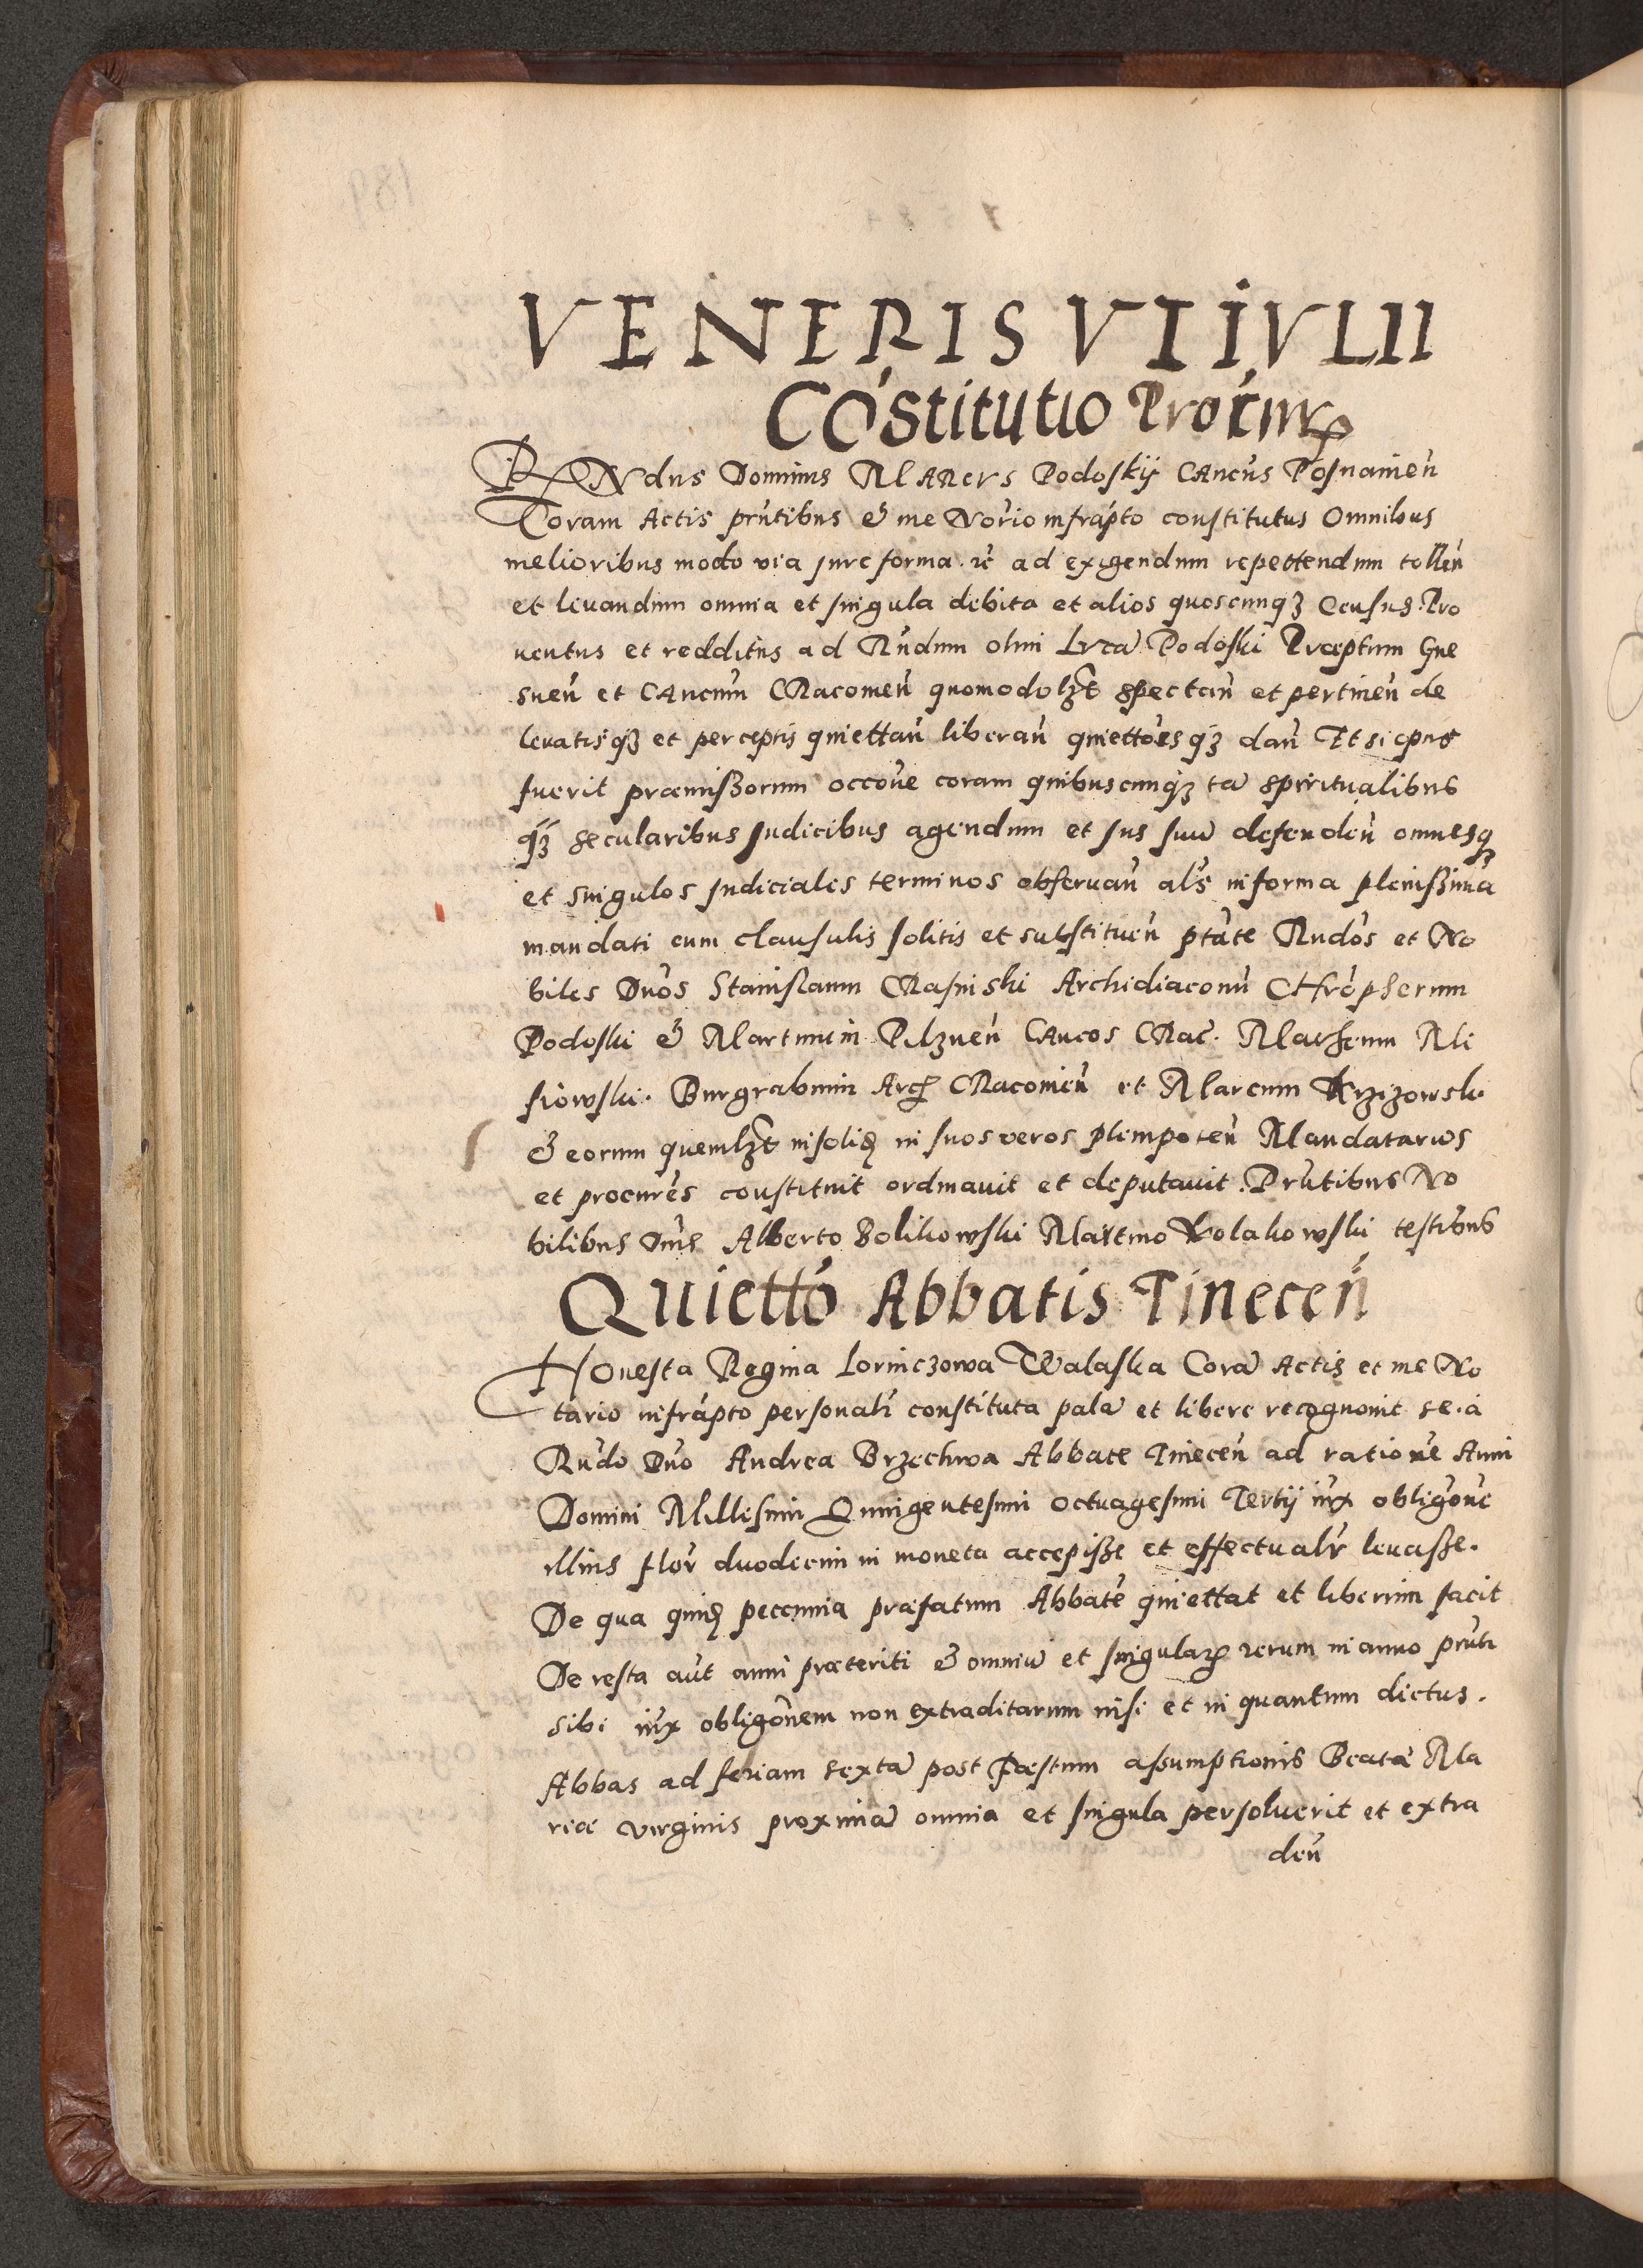 VENERIS VI IVLII
Cōstitutio Procūrꝝ
RNdus Dominus MLARCVS Podoskij CANcūs Posnanień
Coram Actis prn̄tibus & me Nōrio infrap̄to constitutus Omnibus
melioribus modo via jure forma ꝛc̄ ad exigendum repettendum tollēn
et leuandum omnia et singula debita et alios quoscunqꝫ Census Pro
uentus et redditus ad Rn̄dum olim Lvcā Podoski Præptum Gne
snēn et CANcūm CRacouiēn quomodolꝫt spectān et pertinēn de
leuatisqꝫ et perceptis quiettān liberān quiettōesqꝫ dān Et si opus
fuerit præmissorum occōne coram quibuscunqꝫ tā spiritualibus
qꝫ secularibus Judicibus agendum et Jus suū defendēn omnesqꝫ
et singulos Judiciales terminos obseruān al̄s in forma plenissima
mandati cum clausulis solitis et substituēn ptāte Rn̄dos et No
biles Dn̄os Stanislaum CRasinski Archidiaconū CHrōpherum
Podoski & Martinum Pilznēn CANcos CRac̄. Matheum Mi
siowski. Burgrabium Arcꝭ CRacouiēn et Marcum Krzizowski
& eorum quemlꝫt insolid̄ in suos veros plenipotēn Mandatarios
et procūres constituit ordinauit et deputauit. Prn̄tibus No
bilibus Dn̄is Alberto Solikowski Martino Kolakowski testibus
Quiettō Abbatis Tinecēn
HOnesta Regina Lorinczowa Walaska Corā Actis et me No
tario infrap̄to personalr̄ constituta palā et libere recognouit se. a
Rn̄do Dn̄o Andrea Brzechwa Abbate Tinecēn ad rationē Anni
Domini Millesimi Quingentesimi octuagesimi Tertij iux̄ obligōne
illius flor̄ duodecim in moneta accepisse et effectualr̄ leuasse.
De qua quid̄ pecunia præfatum Abbatē quiettat et liberum facit
De resta aūt anni præteriti & omniū et singularꝝ rerum in anno prn̄ti
sibi iux̄ obligōnem non extraditarum nisi et in quantum dictus.
Abbas ad feriam sextā post Fæstum assumptionis Beatæ Ma
riæ virginis proximā omnia et singula persoluerit et extra
dēn